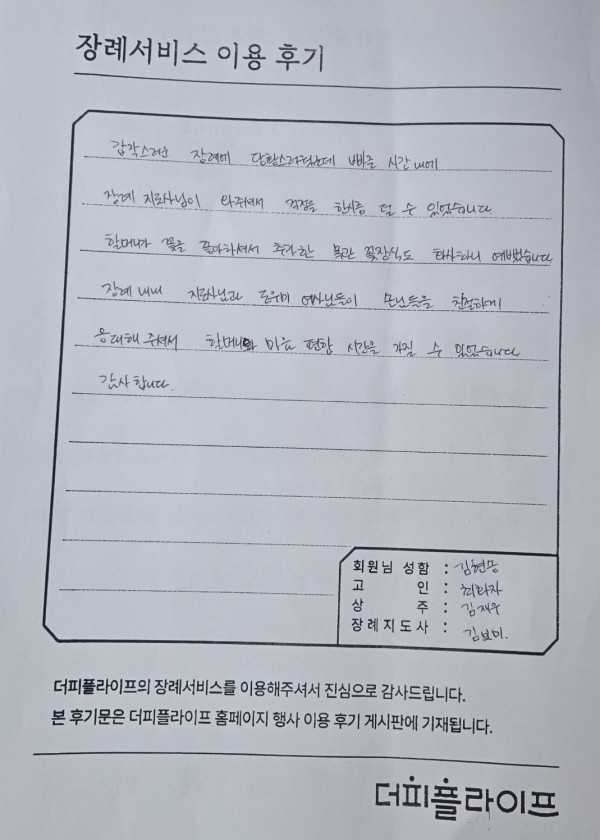 장례서비스 이용 후기
갑작스러운 장례에 당황스러웠는데 빠른 시간 내에
장례 지도사님이 와주셔서 걱정을 한시름 덜 수 있었습니다
할머니가 꽃을 좋아하셔서 추가한 헌관 꽃장식도 화사하니 예뻤습니다
장례 내내 지도사님과 도우미 여사님들이 손님들을 친절하게
응대해 주셔서 할머니와 마음 편한 시간을 가질 수 있었습니다
감사 합니다.
회원님 성함 :
고 인 : 최타자
상 주 : 김재우
장례지도사 : 김보미.
더피플라이프의 장례서비스를 이용해주셔서 진심으로 감사드립니다.
본 후기문은 더피플라이프 홈페이지 행사 이용 후기 게시판에 기재됩니다.
더피플라이프